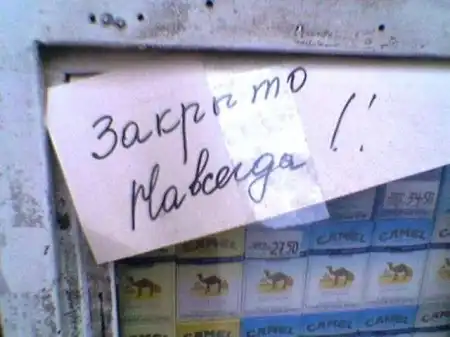 Закрыто
Навсегда !!
34-50
27.50
CAMEL
CAMEL
CAMEL
CAMEL
CAMEL
CAMEL
CAMEL
CAMEL